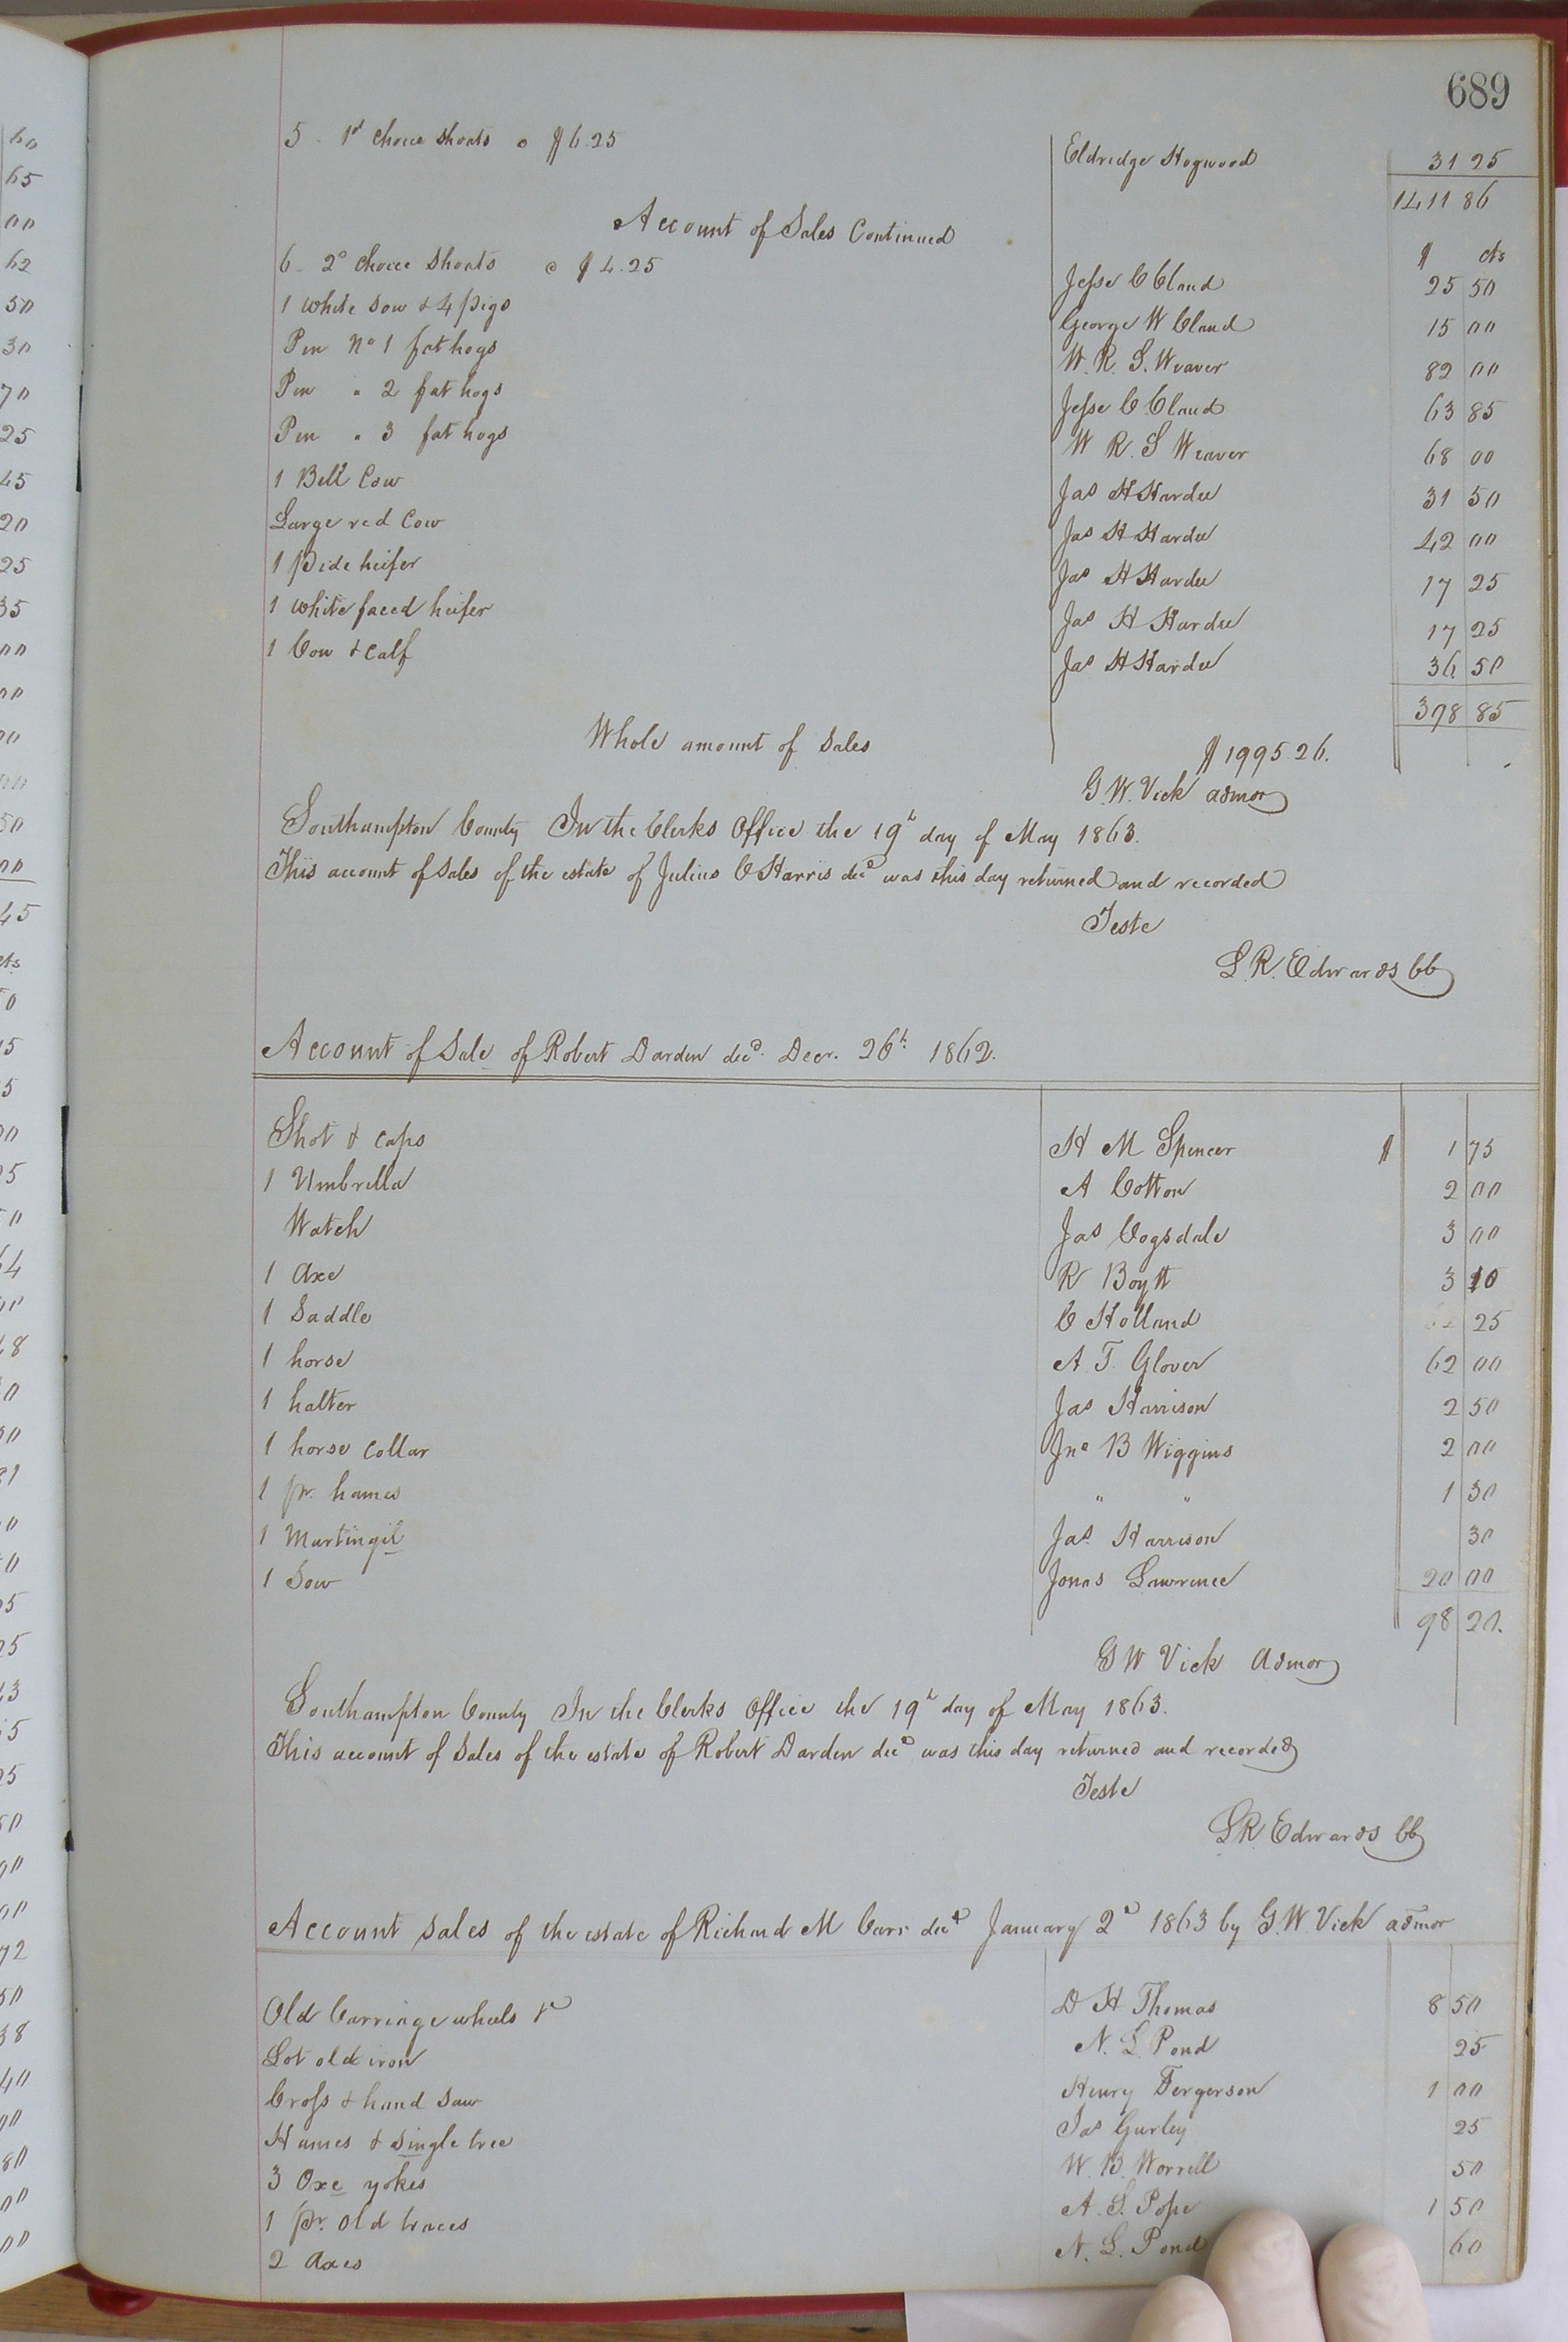 689
5 - 1st choice shoats @ $6.25 Eldridge Hogwood 31 25
1411 86
Account of Sales Continued
$ cts
6 - 2d choice shoats @ $4.25 Jesse C Claud 25 50
1 white sow & 4 pigs George W Claud 15 00
Pen No 1 fat hogs W. R. S. Weaver 82 00
Pen " 2 fat hogs Jesse C Claud 63 85
Pen " 3 fat hogs W R. S Weaver 68 00
1 Bell Cow Jas H Hardee 31 50
Large red Cow Jas H Hardee 42 00
1 pide heifer Jas H Hardee 17 25
1 white faced heifer Jas H Hardee 17 25
1 Cow & Calf Jas H Hardee 36 50
398 85
Whole amount of Sales $1995.26.
G. W. Vick admor
Southampton County In the Clerks Office the 19th day of May 1863.
This account of Sales of the estate of Julius C Harris decd was this day returned and recorded
Teste
L. R. Edwards CC
Account of Sale of Robert Darden decd. Decr. 26th 1862.
Shot & caps H M Spencer $ 1 75
1 Umbrella A Cotton 2 00
Watch Jas Cogsdale 3 00
1 Axe R Boytt 3 10
1 Saddle C Holland 25
1 horse A. T. Glover 62 00
1 halter Jas Harrison 2 50
1 horse Collar Jno B Wiggins 2 00
1 pr. hames " " 1 30
1 Martingil Jas Harrison 30
1 Sow Jonas Lawrence 20 00
98 20.
G W Vick Admor
Southampton County In the Clerks Office the 19th day of May 1863.
This account of Sales of the estate of Robert Darden decd was this day returned and recorded
Teste
L R Edwards CC
Account Sales of the estate of Richard M Carr decd January 2d 1863 by G. W. Vick admor
Old Carriage wheels &c D H Thomas 8 50
Lot old iron N. L. Pond 25
Cross & hand Saw Henry Fergerson 1 00
Hames & Single tree Jas Gurley 25
3 Oxe yokes W. B. Worrell 50
1 pr. old traces A. S. Pope 1 50
2 Axes N. L. Pond 60